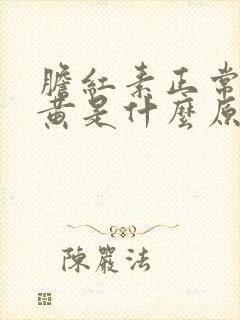 膽紅素正常
黃是什麼原
陳嚴法